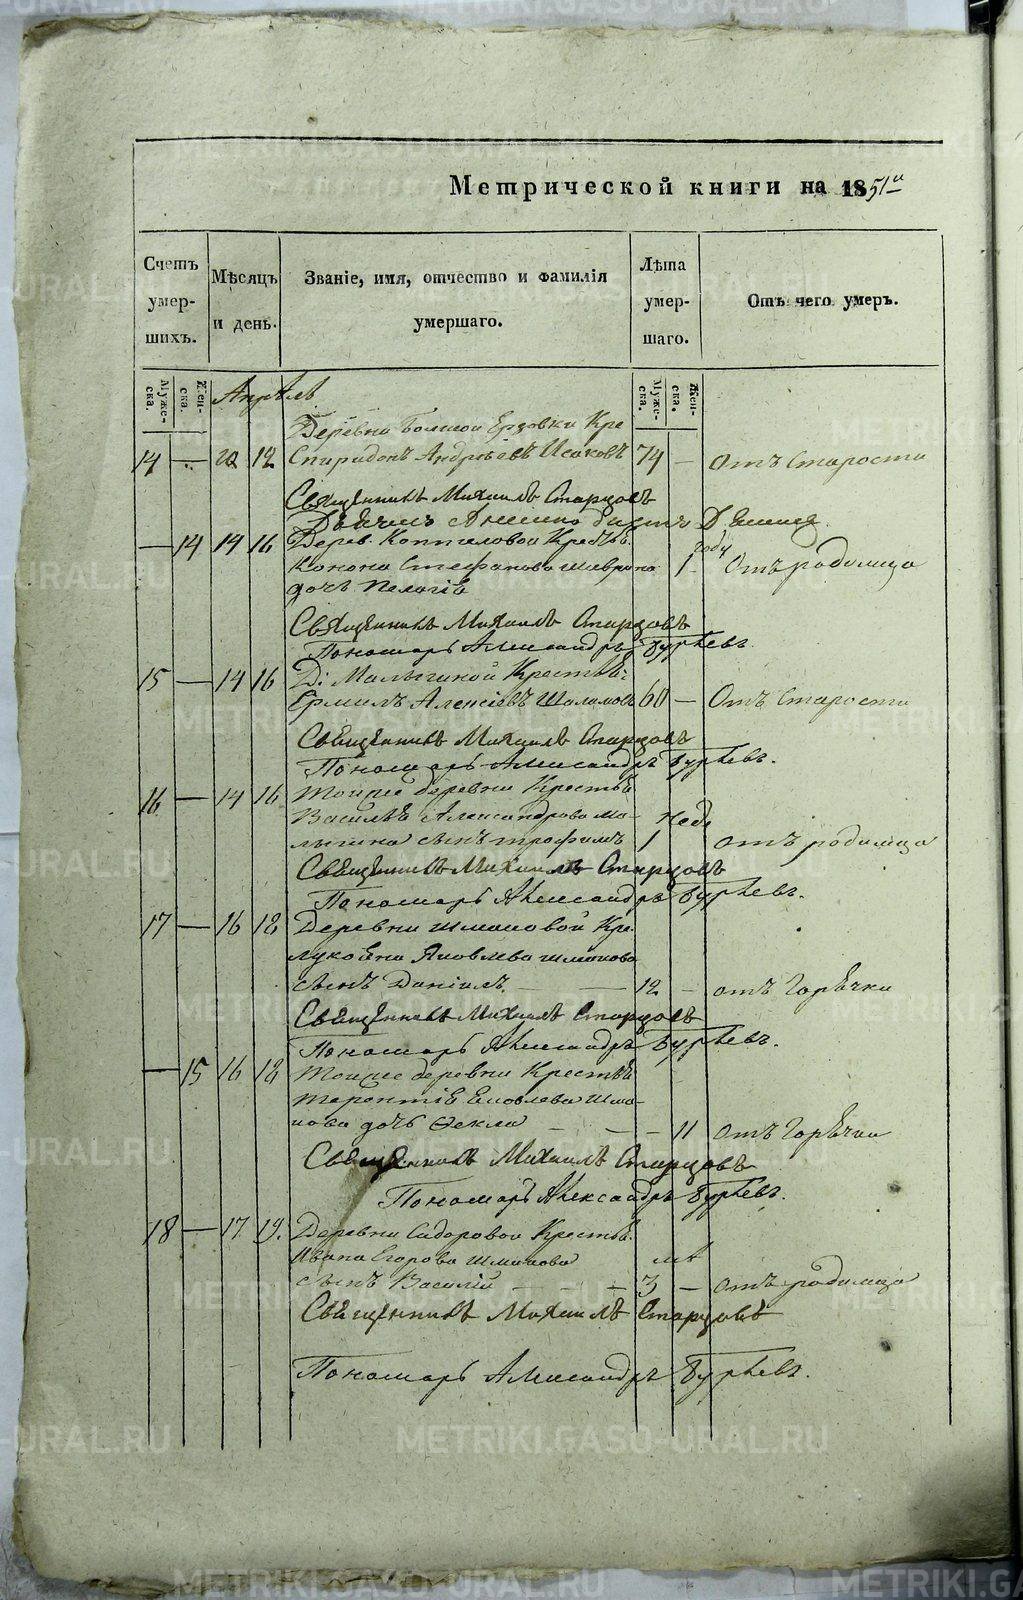 Метрической книги на 1851й
Счетъ умер-шихъ.
Мѣсяцъ и день.
Званіе, имя, отчество и фамилія умершаго.
Лѣта умер-шаго.
Отъ чего умеръ.
Муже-ска. Жен-ска.
Апрѣль
Муже-ска. Жен-ска.
Деревни Большой Ерзовки Кре
14 — 12 Спиридонъ Андрѣевъ Исаковъ 74 — Отъ Старости
Священникъ Михаилъ Старцовъ
— 14 14 16 Дерев. Коптеловой Крестьв.
году
Конона Стефанова Шаврина 1 Отъ родимца
дочь Пелагiя
Священникъ Михаилъ Старцовъ
Пономарь Александръ Гурьевъ.
15 — 14 16 Д: Малыгиной Крестьв:
Ермилъ Алексiевъ Шаламовъ 60 — Отъ Старости
Священникъ Михаилъ Старцовъ
Пономарь Александръ Гурьевъ.
16 — 14 16 Тойже деревни Крестьв
Василья Александрова Ма- неде
лыгина сынъ Трофимъ 1 отъ родимца
Священникъ Михаилъ Старцовъ
Пономарь Александръ Гурьевъ.
17 — 16 18 Деревни Шмаковой Кре.
Яковлева Шмакова
сынъ Данiилъ — — 12 — отъ Горячки
Священникъ Михаилъ Старцовъ
Пономарь Александръ Гурьевъ.
— 15 16 18 Тойже деревни Крестьв
Терентiя Яковлева Шма-
кова дочь Ѳекла — — — 11 отъ Горячки
Священникъ Михаилъ Старцовъ
Пономарь Александръ Гурьевъ.
18 — 17 19. Деревни Сидоровой Крестьв.
Ивана Егорова Шмакова лѣ
сынъ Василiй — — — 3 — отъ родимца
Священникъ Михаилъ Старцовъ
Пономарь Александръ Гурьевъ.
METRIKI.GASO-URAL.RU